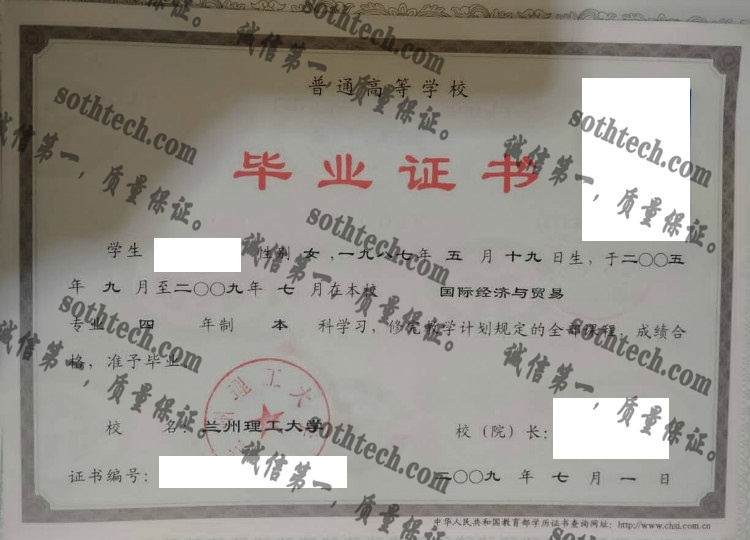 普通高等学校
毕业证书
学生 性别 女，一九八七年 五 月 十九 日生，于二〇〇五
年 九 月至二〇〇九年 七 月在本校 国际经济与贸易
专业 四 年制 本 科学习，修完教学计划规定的全部课程，成绩合
格，准予毕业。
校 名：兰州理工大学 校（院）长：
证书编号： 二〇〇九 年 七 月 一 日
中华人民共和国教育部学历证书查询网址：http://www.chsi.com.cn
理工大
sothtech.com
诚信第一，质量保证。
sothtech.com
诚信第一，质量保证。
sothtech.com
诚信第一，质量保证。
sothtech.com
诚信第一，质量保证。
sothtech.com
诚信第一，质量保证。
sothtech.com
诚信第一，质量保证。
sothtech.com
诚信第一，质量保证。
sothtech.com